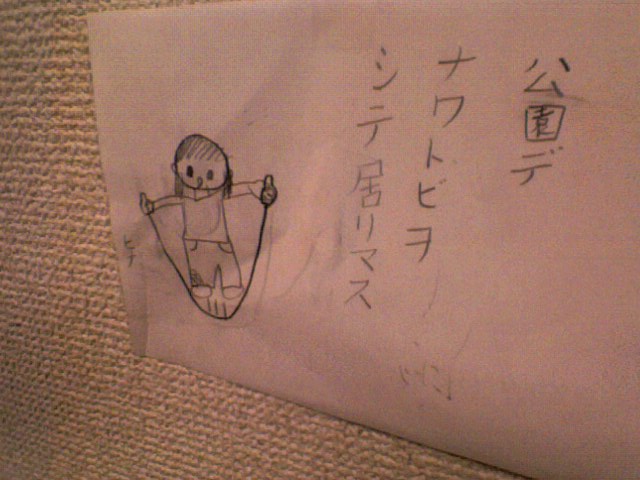 公園デ
ナワトビヲ
シテ居リマス
ヒナ